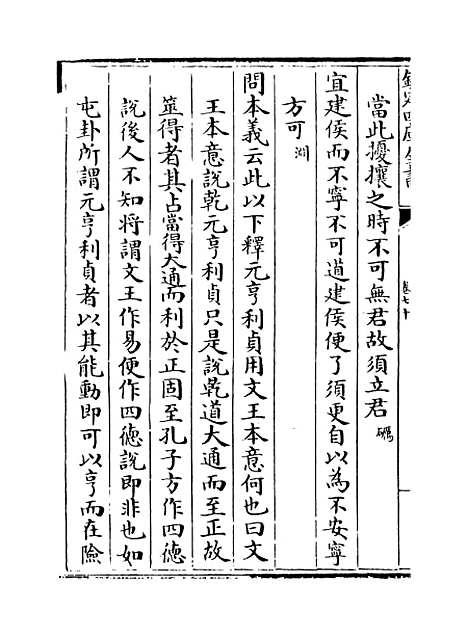 欽定四庫全書
卷七十
當此擾攘之時不可無君故須立君礪
宜建侯而不寧不可道建侯便了須更自以為不安寧
方可淵
問本義云此以下釋元亨利貞用文王本意何也曰文
王本意說乾元亨利貞只是說乾道大通而至正故
筮得者其占當得大通而利於正固至孔子方作四德
說後人不知將謂文王作易便作四德說即非也如
屯卦所謂元亨利貞者以其能動即可以亨而在險